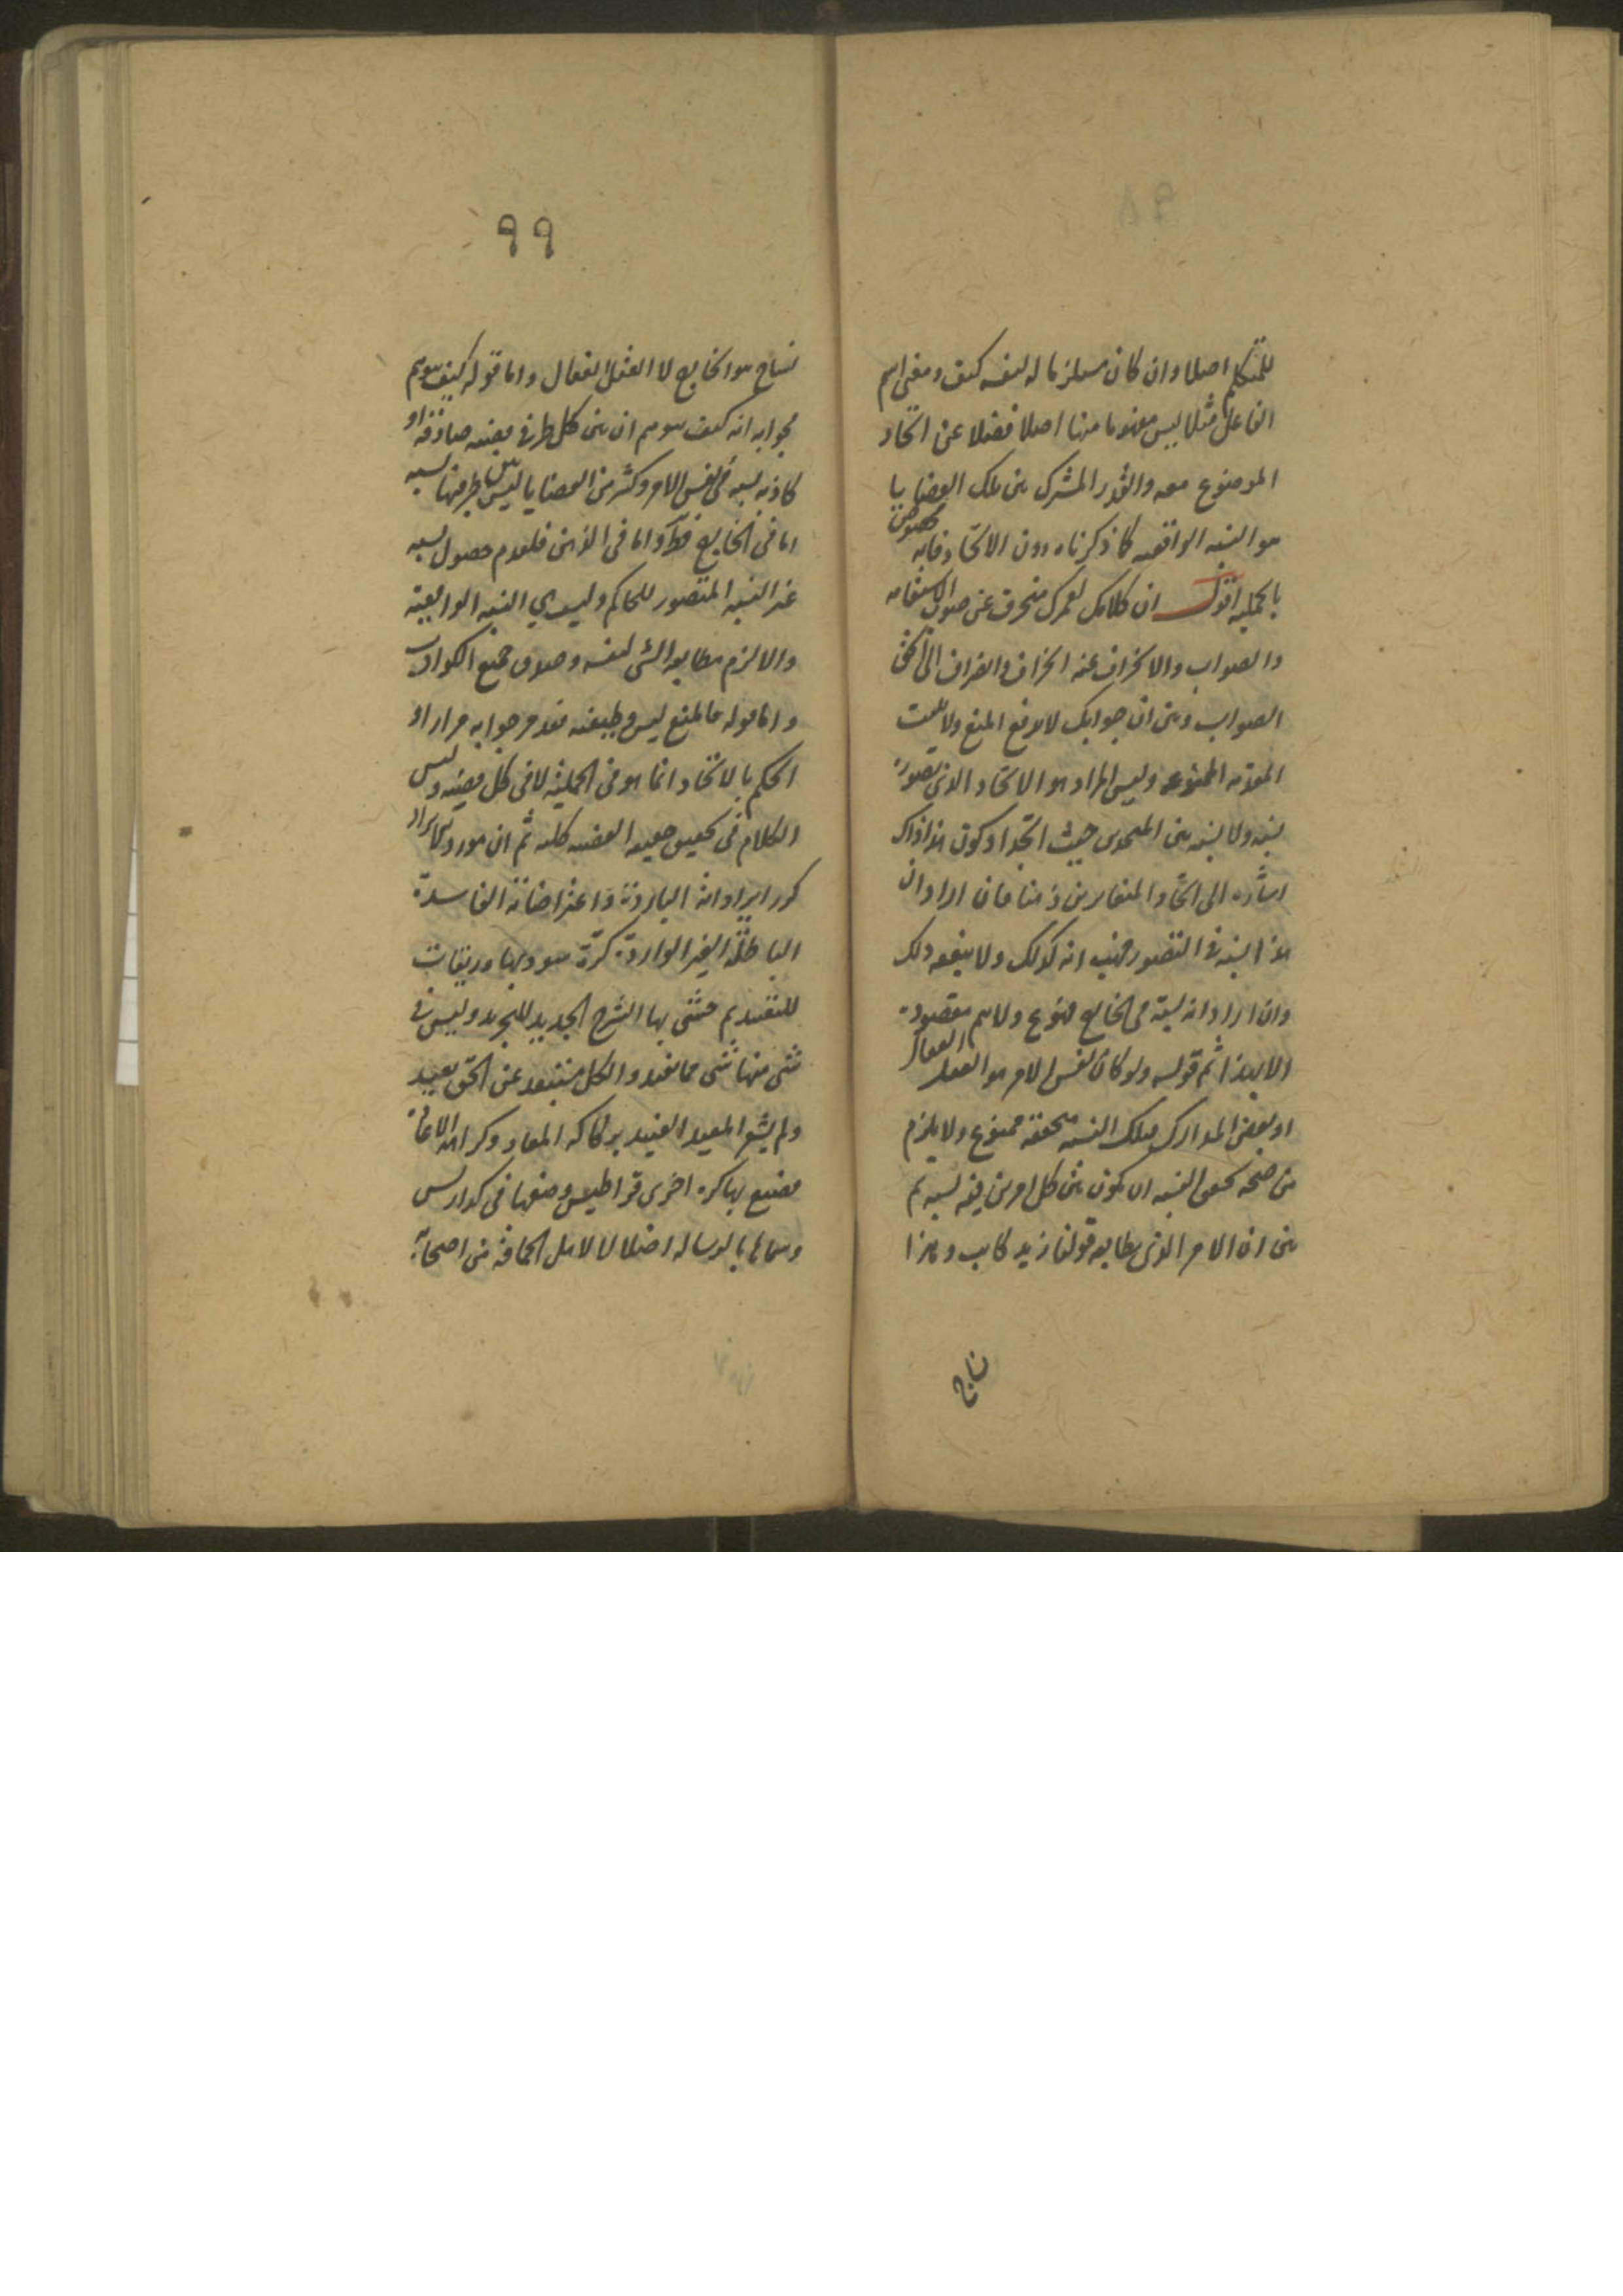 للمتكلم اصلا وان كان مستلزما له لنفسه كيف ومعنى اسم
الفاعل مثلا ليس مفهوما منها اصلا فضلا عن اتحاد
الموضوع معه والقدر المشترك بين تلك القضايا
هو النسبه الواقعيه كما ذكرناه دون الاتحاد فانه مخصوص
بالحمليه اقول ان كلامك لعمرك منحرف عن صوب الاستقامه
والصواب والانحراف عنه انحراف وانصراف الى
الصواب وبين ان جوابك لا يدفع المنع ولا يثبت
المقدمه الممنوعه وليس المراد هو الاتحاد الذي تصوره
نسبه ولا نسبه بين المتحدين حيث اتحدا وكون هذا ذاك
اشاره الى اتحاد المتغايرين ذهنا فان اراد ان
هذا نسبه في التصور فهب انه كذلك ولا ينفعه ذلك
وان اراد انه نسبة في الخارج فممنوع ولا يتم مقصوده
الا بهذا ثم قوله ولو كان نفس الامر هو العقل الفعال
او بعض المدارك فتلك النسبه متحققه ممنوع ولا يلزم
من صحه تحقق النسبه ان يكون بين كل امرين فيه نسبه ثم
بين ان الامر الذي يطابقه قولنا زيد كاتب وهذا
ناج
٩٩
نساج هو الخارج لا العقل الفعال واما قوله كيف يتوهم
فجوابه انه كيف يتوهم ان بين كل طرفي قضيه صادقة او
كاذبه نسبه في نفس الامر وكثير من القضايا ليس بين طرفيها نسبه
اما في الخارج فظ واما في الذهن فلعدم حصول نسبه
غير النسبه المتصور للحاكم وليس هي النسبه الواقعية
والا لزم مطابقه الشى لنفسه وصدق جميع الكواذب
واما قوله فالمنع ليس وظيفته فقد مر جوابه مرارا و
الحكم بالاتحاد انما هو في الحملية لا في كل قضيه وليس
الكلام في تحقيق حقيقه القضيه كله ثم ان مورد الايراد
كرر ايراداته الباردة واعتراضاته الفاسدة
الباطلة الغير الواردة كرة سود بها وريقات
للتقديم حشى بها الشرح الجديد للتجريد وليس في
شى منها شى مما يفيد والكل مستبعد عن الحق بعيد
ولم يشعر المعيد العنيد بركاكه المعاد وكراهه الاعادة
فضيع بها كره اخرى قراطيس وضعها في كراريس
وسماها بالرسالة اضلالا لاهل الجحافه من اصحابه